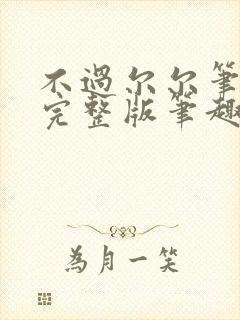 不過尔尔筆
完整版筆趣
為月一笑